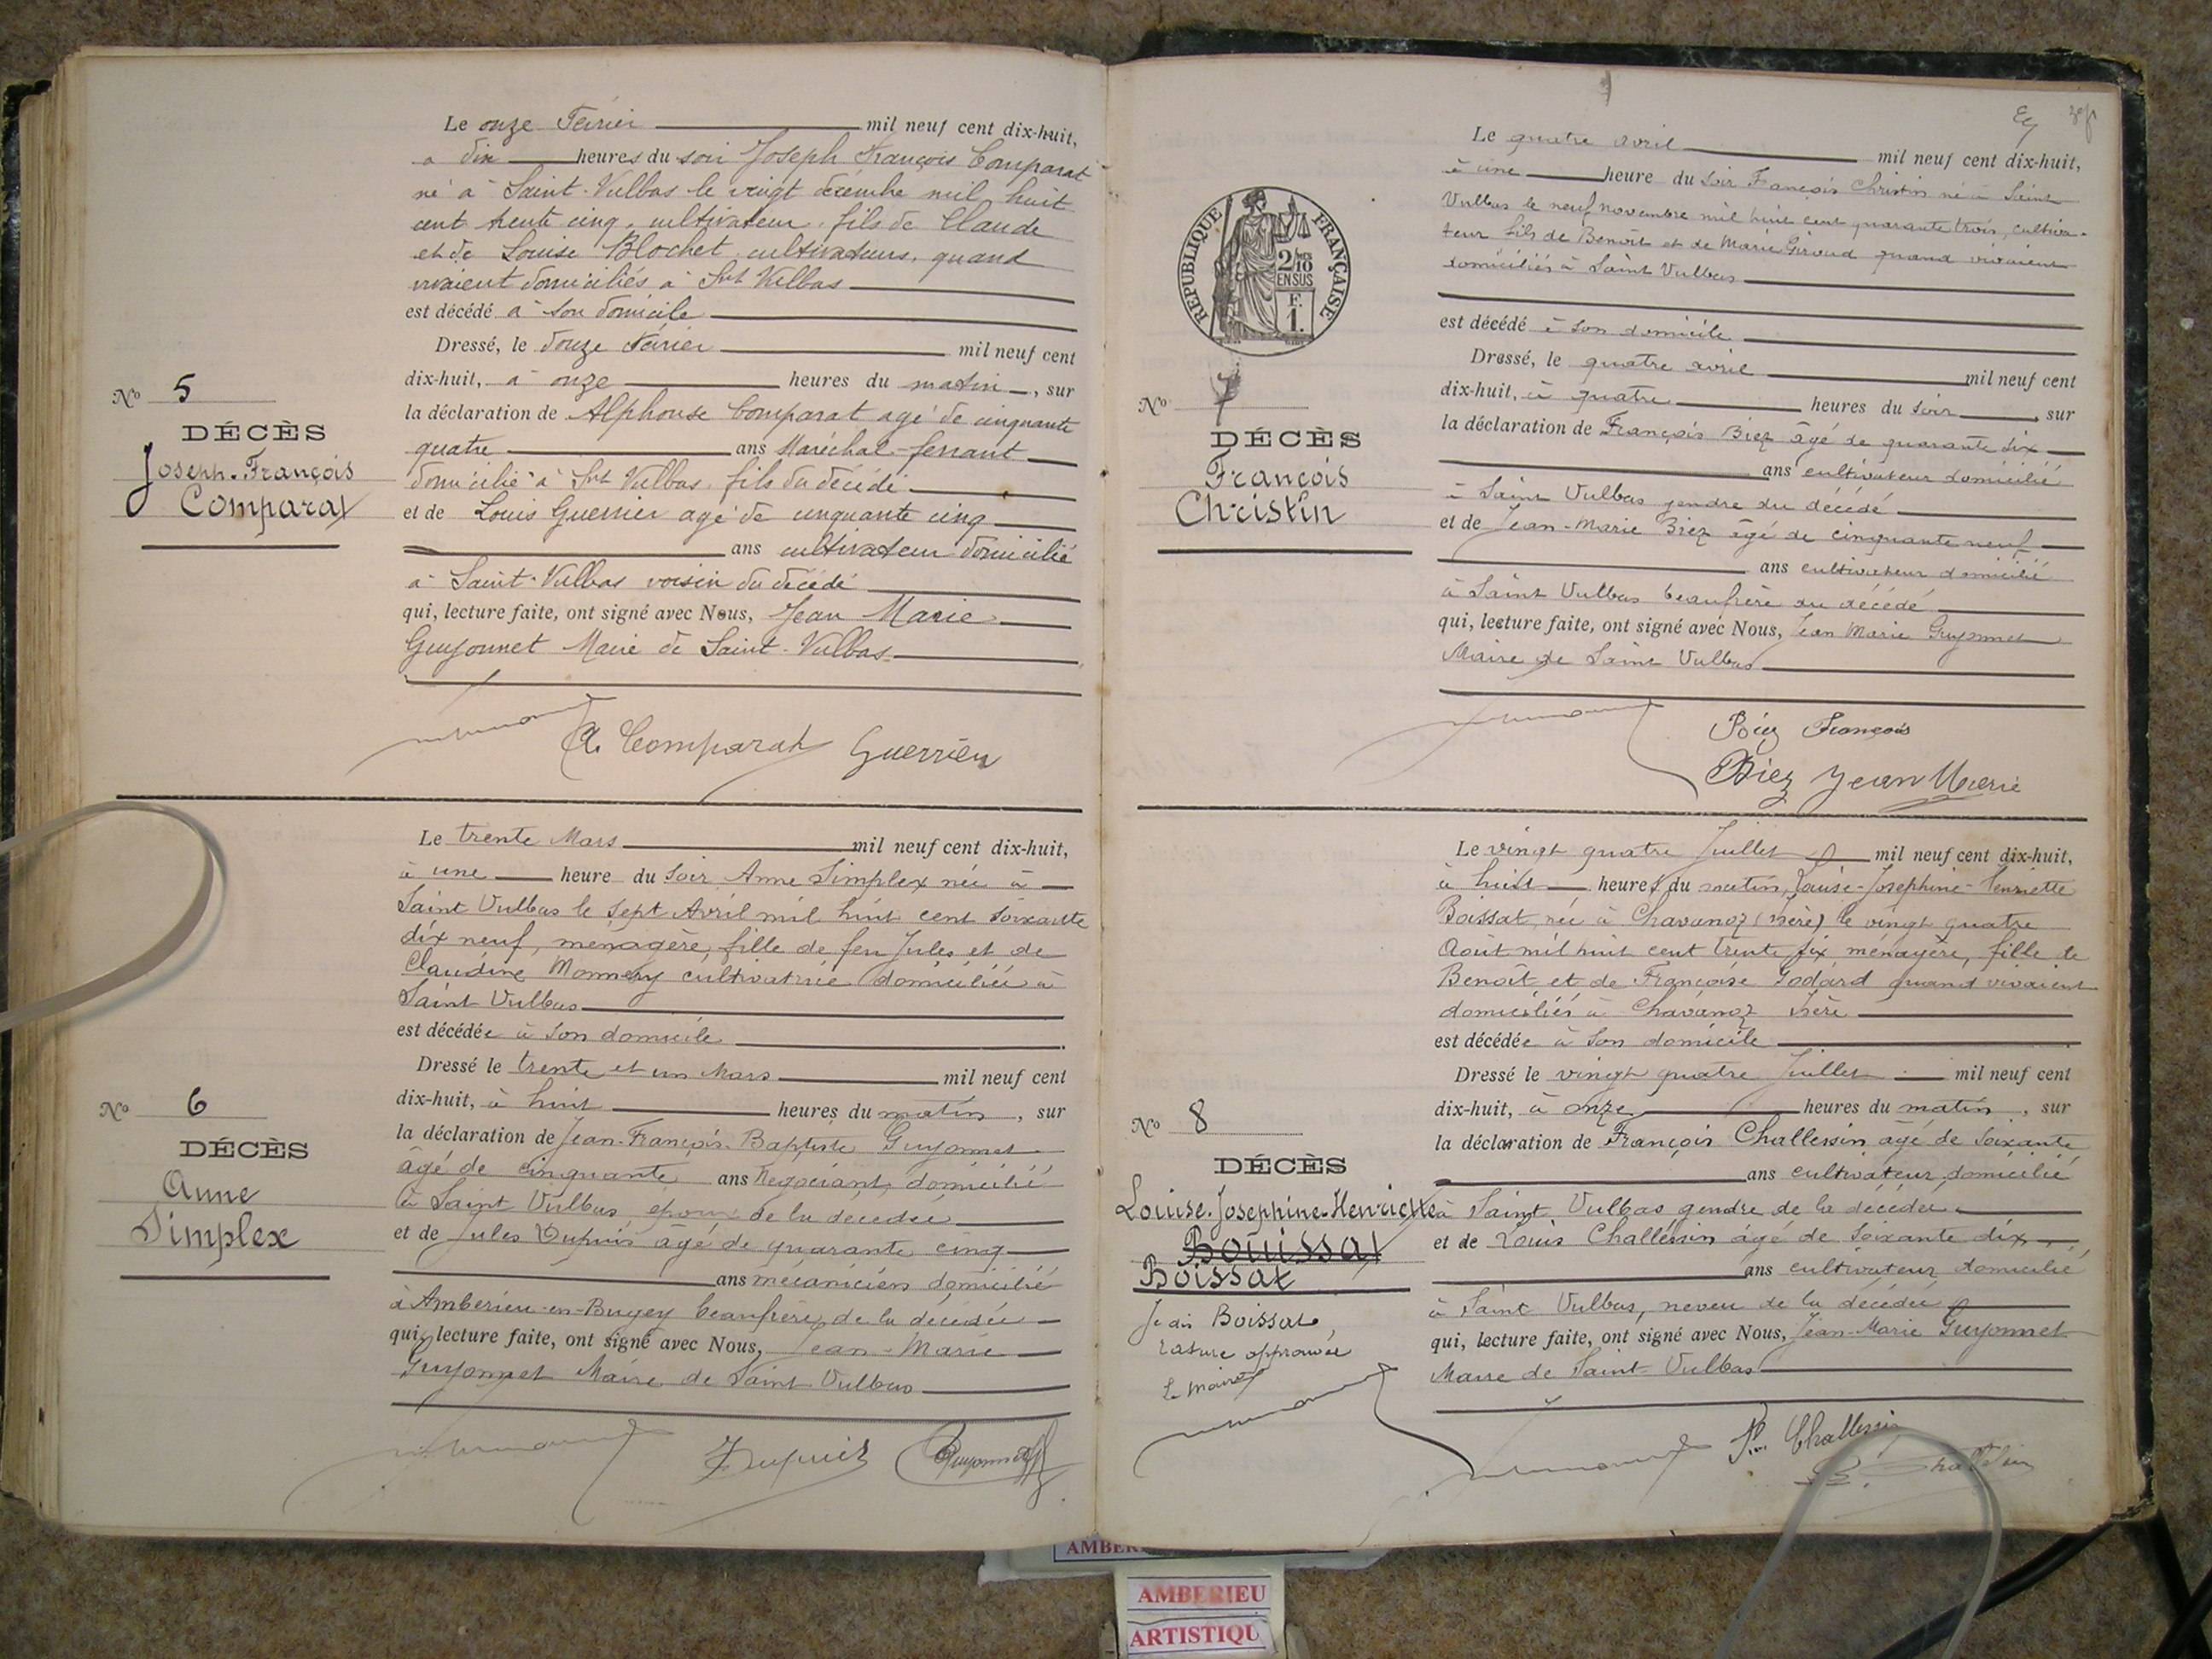 Le onze Février mil neuf cent dix-huit,
à dix heures du soir Joseph François Comparat
né à Saint-Vulbas le vingt décembre mil huit
cent trente cinq, cultivateur, fils de Claude
et de Louise Blochet cultivateurs, quand
vivaient domiciliés à Snt Vulbas
est décédé à son domicile
Dressé, le douze Février mil neuf cent
dix-huit, à onze heures du matin, sur
la déclaration de Alphonse Comparat agé de cinquante
quatre ans Maréchal-ferrant
domicilié à Snt Vulbas fils du décédé
et de Louis Guerrier agé de cinquante cinq
ans cultivateur domicilié
à Saint-Vulbas voisin du décédé
qui, lecture faite, ont signé avec Nous, Jean Marie
Guyonnet Maire de Saint-Vulbas
A. Comparat Guerrier
No 5
DÉCÈS
Joseph-François
Comparat
Le trente Mars mil neuf cent dix-huit,
à une heure du soir Anne Simplex née à
Saint Vulbas le sept Avril mil huit cent soixante
dix neuf, ménagère, fille de feu Jules et de
Claudine Monnery cultivatrice domiciliée à
Saint Vulbas
est décédée à son domicile
Dressé le trente et un Mars mil neuf cent
dix-huit, à huit heures du matin, sur
la déclaration de Jean-François-Baptiste Guyonnet
âgé de cinquante ans Négociant domicilié
à Saint Vulbas époux de la décédée
et de Jules Dupuis âgé de quarante cinq
ans mécanicien domicilié
à Ambérieu-en-Bugey beaufrère de la décédée
qui, lecture faite, ont signé avec Nous, Jean-Marie
Guyonnet Maire de Saint Vulbas
Dupuis Guyonnet
No 6
DÉCÈS
Anne
Simplex
Le quatre avril mil neuf cent dix-huit,
à une heure du soir François Christin né à Saint
Vulbas le neuf novembre mil huit cent quarante trois, cultiva-
teur fils de Benoît et de Marie Giroud quand vivaient
domiciliés à Saint Vulbas
est décédé à son domicile
Dressé, le quatre avril mil neuf cent
dix-huit, à quatre heures du soir, sur
la déclaration de François Biez âgé de quarante six
ans cultivateur domicilié
à Saint Vulbas gendre du décédé
et de Jean-Marie Biez âgé de cinquante neuf
ans cultivateur domicilié
à Saint Vulbas beaufrère du décédé
qui, lecture faite, ont signé avec Nous, Jean Marie Guyonnet
Maire de Saint Vulbas
Biez François
Biez Jean Marie
RÉPUBLIQUE FRANÇAISE
2/10
EN SUS
F.
1.
No 7
DÉCÈS
François
Christin
Le vingt quatre Juillet mil neuf cent dix-huit,
à huit heures du matin, Louise-Josephine-Henriette
Boissat, née à Chavanoz (Isère) le vingt quatre
Août mil huit cent trente six, ménagère, fille de
Benoît et de Françoise Godard quand vivaient
domiciliés à Chavanoz Isère
est décédée à son domicile
Dressé le vingt quatre Juillet mil neuf cent
dix-huit, à onze heures du matin, sur
la déclaration de François Challessin âgé de soixante
ans cultivateur domicilié
à Saint Vulbas gendre de la décédée
et de Louis Challessin âgé de soixante dix
ans cultivateur domicilié
à Saint Vulbas, neveu de la décédée
qui, lecture faite, ont signé avec Nous, Jean-Marie Guyonnet
Maire de Saint Vulbas
Challessin
No 8
DÉCÈS
Louise-Josephine-Henriette
Bouissat
Boissat
Je dis Boissat,
rature approuvée
Le Maire
AMBERIEU
ARTISTIQU